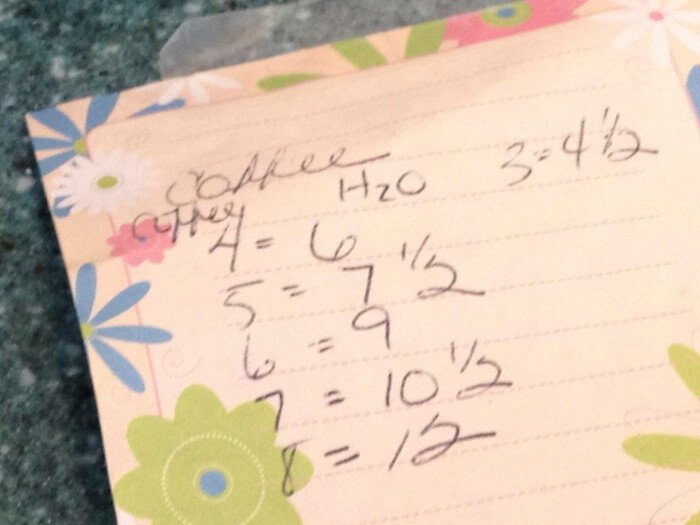 coffee
H2O 3=4 1/2
coffee
4 = 6
5 = 7 1/2
6 = 9
7 = 10 1/2
8 = 12